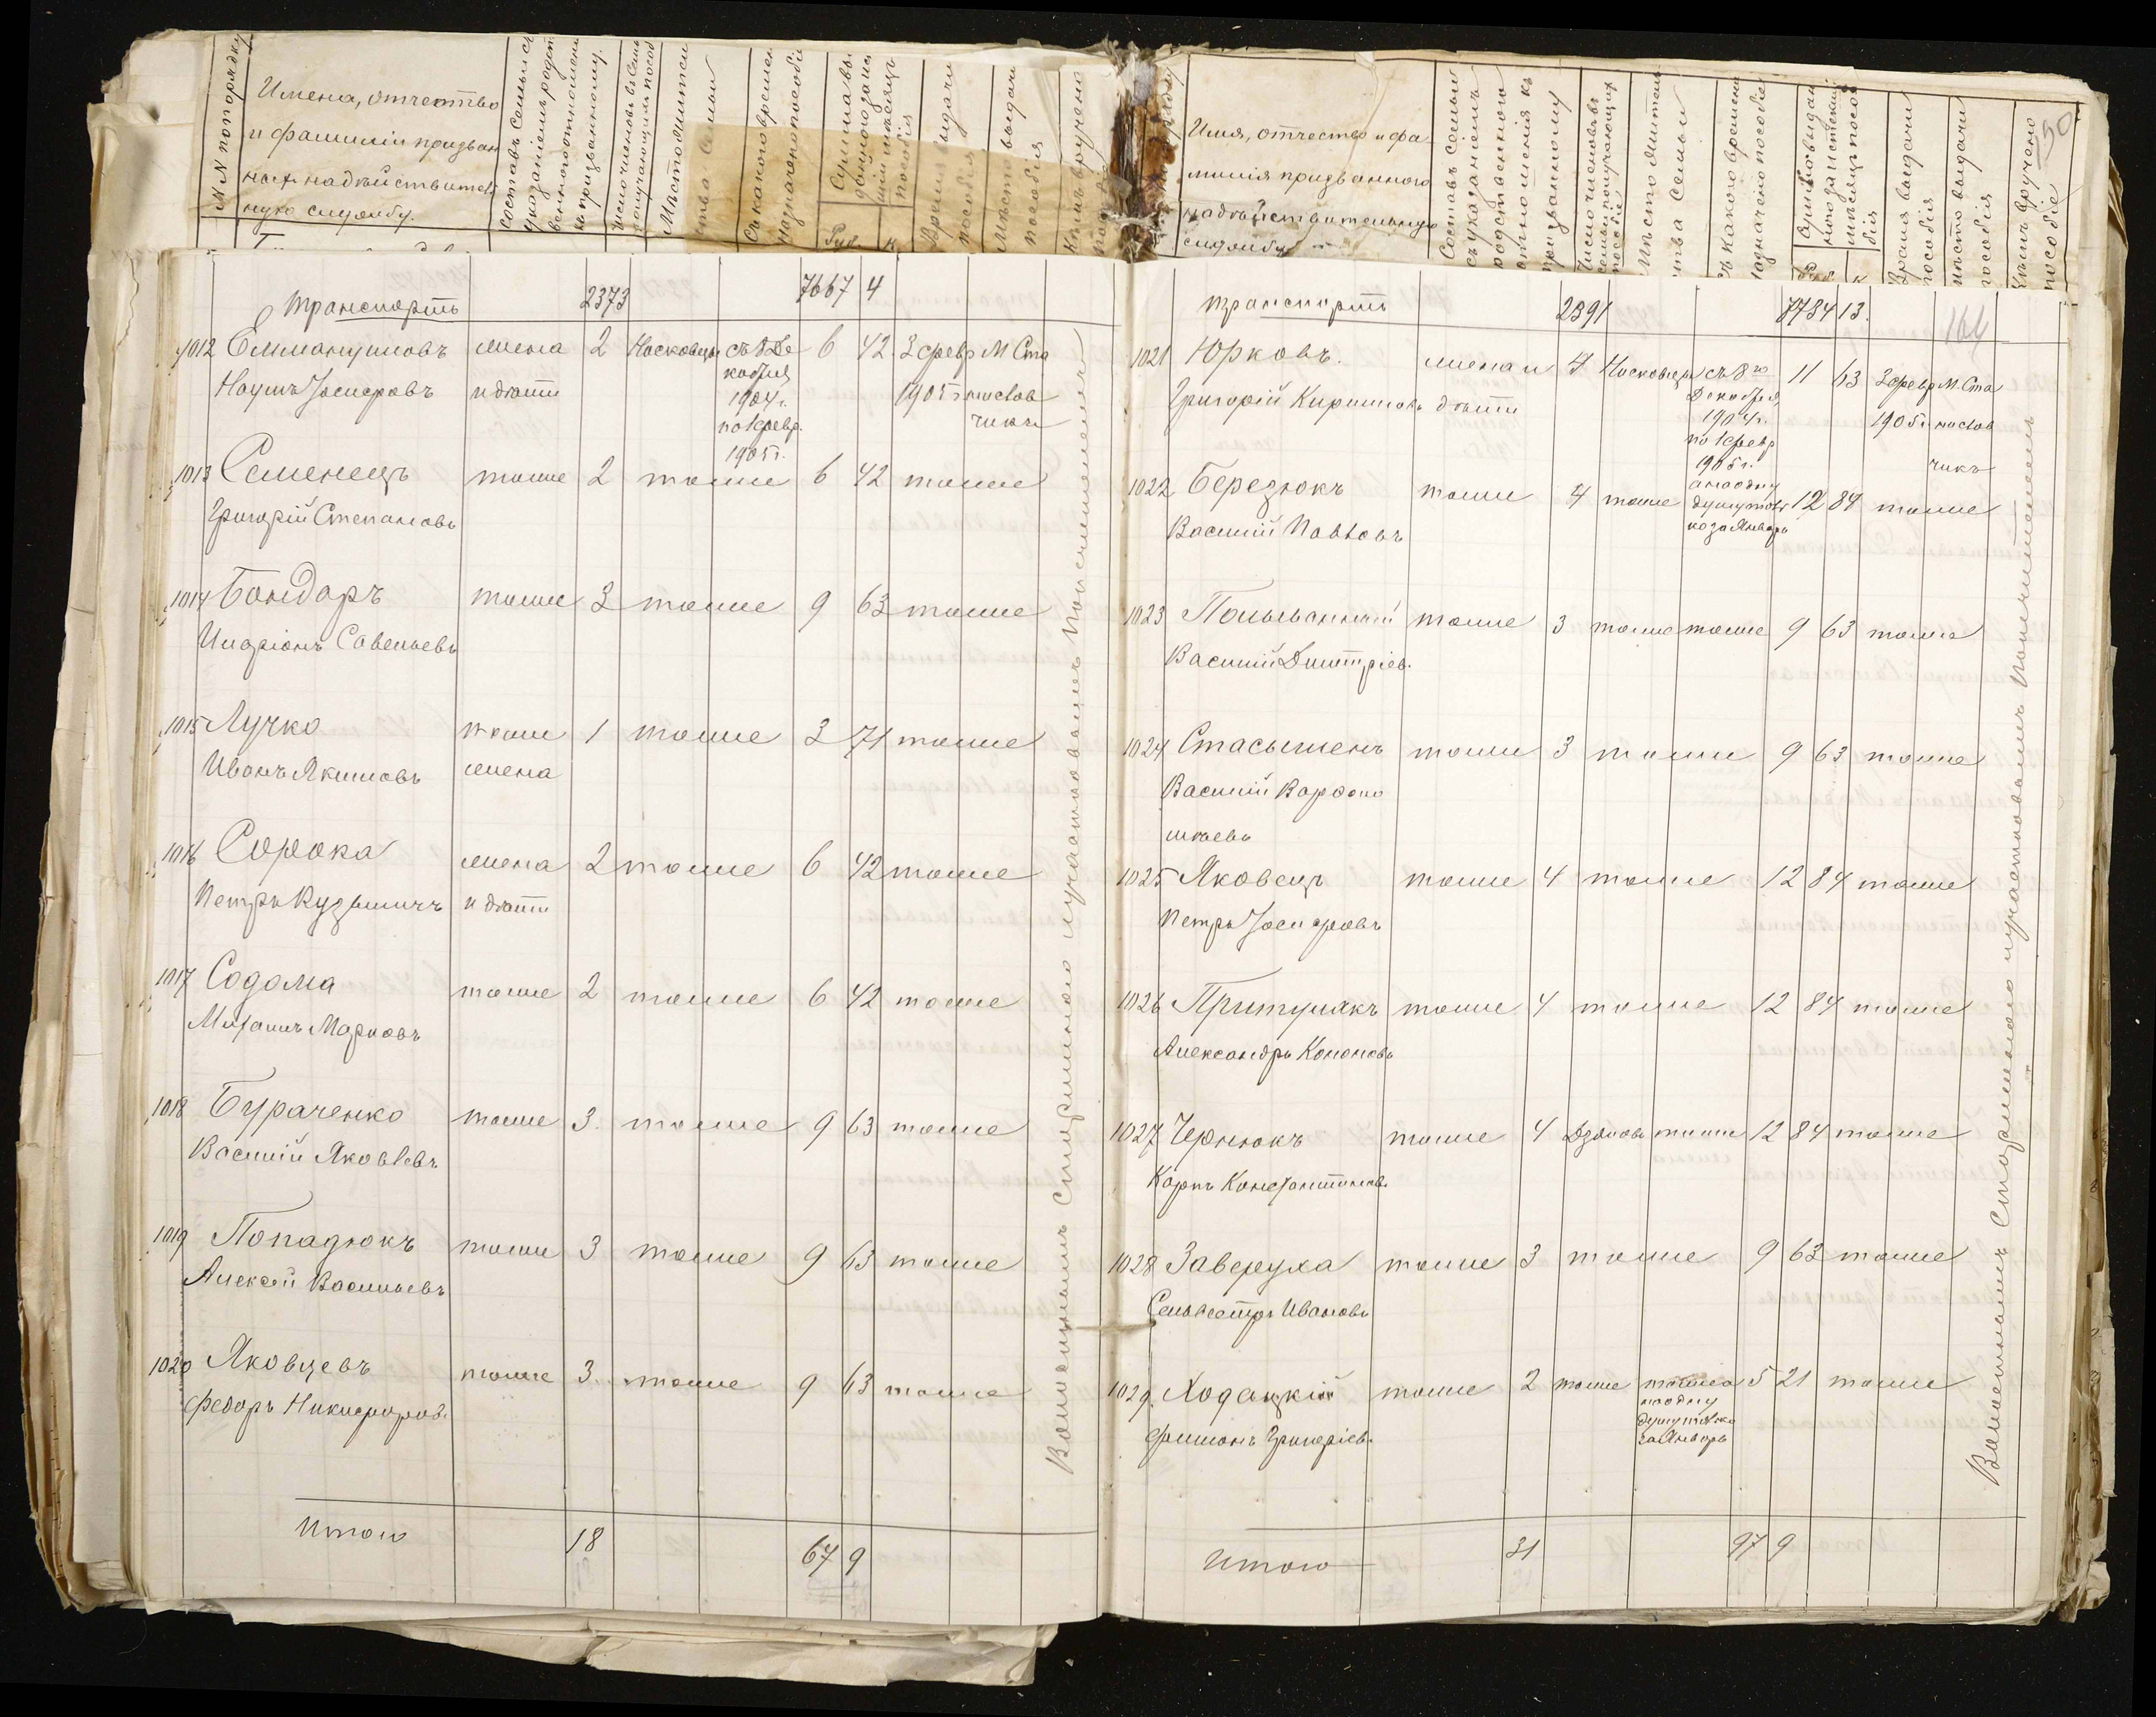 №№ по порядку
Имена, отчество
и фамиліи призван
ныхъ на действитель
ную службу.
Составъ семьи съ
указаніемъ родст
веннаго отношенія
къ призванному.
Число членовъ семьи
получающихъ пособ
Мѣстожитель
ства семьи
Съ какого времен
назначено пособіе
Руб. к
Время выдачи
пособія
Мѣсто выдачи
пособія
Кѣмъ вручено
Транспортъ 2373 7667 4
1012 Еммануиловъ жена 2 Носковцы съ 8 Де 6 42 3 февр М Ста
Наумъ Іосифовъ и дѣти кабря 1905 г. ниславчикъ
1904 г.
по 1 февр.
1905 г.
1013 Семенецъ тоже 2 тоже 6 42 тоже
Григорій Степановъ
1014 Бондаръ тоже 3 тоже 9 63 тоже
Иларіонъ Савельевъ
1015 Лучко тоже 1 тоже 3 71 тоже
Иванъ Якимовъ жена
1016 Сорока жена 2 тоже 6 42 тоже
Петръ Кузьмичъ и дѣти
1017 Содома тоже 2 тоже 6 42 тоже
Михаилъ Марковъ
1018 Бураченко тоже 3 тоже 9 63 тоже
Василій Яковлевъ
1019 Попадюкъ тоже 3 тоже 9 63 тоже
Алексѣй Васильевъ
1020 Яковцевъ тоже 3 тоже 9 63 тоже
Федоръ Никифоров.
Итого 18 67 9
Волостнымъ Старшиною и участковымъ Попечителемъ
Имя, отчество и фа
милія призваннаго
на дѣйствительную
службу
Составъ семьи
съ указаніемъ
родственнаго
отношенія къ
призванному
Число членовъ
семьи получающихъ
пособіе
Мѣсто житель
ства семьи
Съ какого времени
назначено пособіе
Руб. к
Время выдачи
пособія
Мѣсто выдачи
пособія
Кѣмъ вручено
пособіе
50
164
Транспортъ 2391 7784 13.
1021 Юрковъ. жена и 4 Носковцы съ 8 го 11 63 3 февр М. Ста
Григорій Кирилловъ дѣти Декабря 1905 г. нислав
1904 г. чикъ
по 1 февр
1905 г.
1022 Березюкъ тоже 4 тоже 12 84 тоже
Василій Павловъ
а на одну
душу толь
ко за Январь
1023 тоже 3 тоже тоже 9 63 тоже
Василій Дмитріев.
1024 Стасышенъ тоже 3 тоже 9 63 тоже
Василій Варфоло
мѣевъ
1025 Яковецъ тоже 4 тоже 12 84 тоже
Петръ Іосифовъ
1026 Притулякъ тоже 4 тоже 12 84 тоже
Александръ Кононовъ
1027 Чернюкъ тоже 4 тоже 12 84 тоже
Карпъ Константинов.
1028 Заверуха тоже 3 тоже 9 63 тоже
Сельвестръ Ивановъ
1029. Ходацкій тоже 2 тоже тоже а 5 21 тоже
Филимонъ Григоріев.
на одну
душу только
за Январь
Итого 31 97 9
Волостнымъ Старшиною и участковымъ Попечителемъ